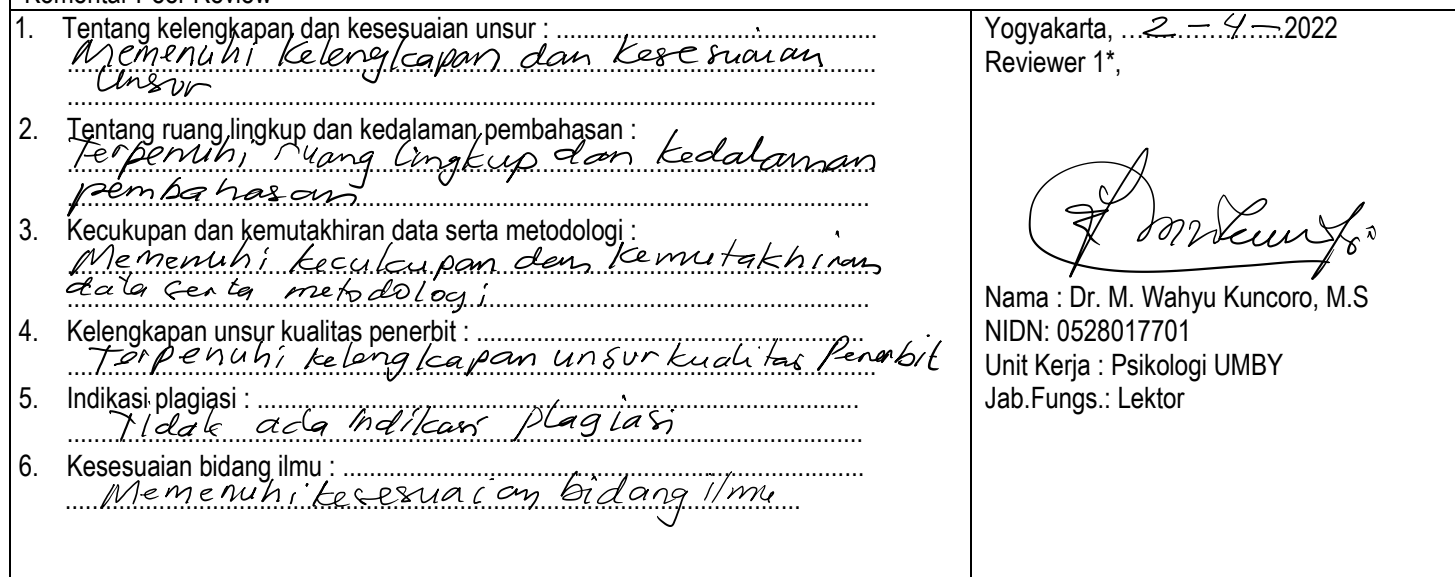 Komentar Peer Review
1. Tentang kelengkapan dan kesesuaian unsur : ................................................
Memenuhi kelengkapan dan kesesuaian
Unsur
2. Tentang ruang lingkup dan kedalaman pembahasan :
Terpenuhi ruang lingkup dan kedalaman
pembahasan
3. Kecukupan dan kemutakhiran data serta metodologi :
Memenuhi kecukupan dan kemutakhiran
data serta metodologi
4. Kelengkapan unsur kualitas penerbit : ..........................................................
Terpenuhi kelengkapan unsur kualitas Penerbit
5. Indikasi plagiasi : ..........................................................................................
Tidak ada indikasi plagiasi
6. Kesesuaian bidang ilmu : ..............................................................................
Memenuhi kesesuaian bidang ilmu
Yogyakarta, ...2 - 4 - 2022
Reviewer 1*,
Nama : Dr. M. Wahyu Kuncoro, M.S
NIDN: 0528017701
Unit Kerja : Psikologi UMBY
Jab.Fungs.: Lektor